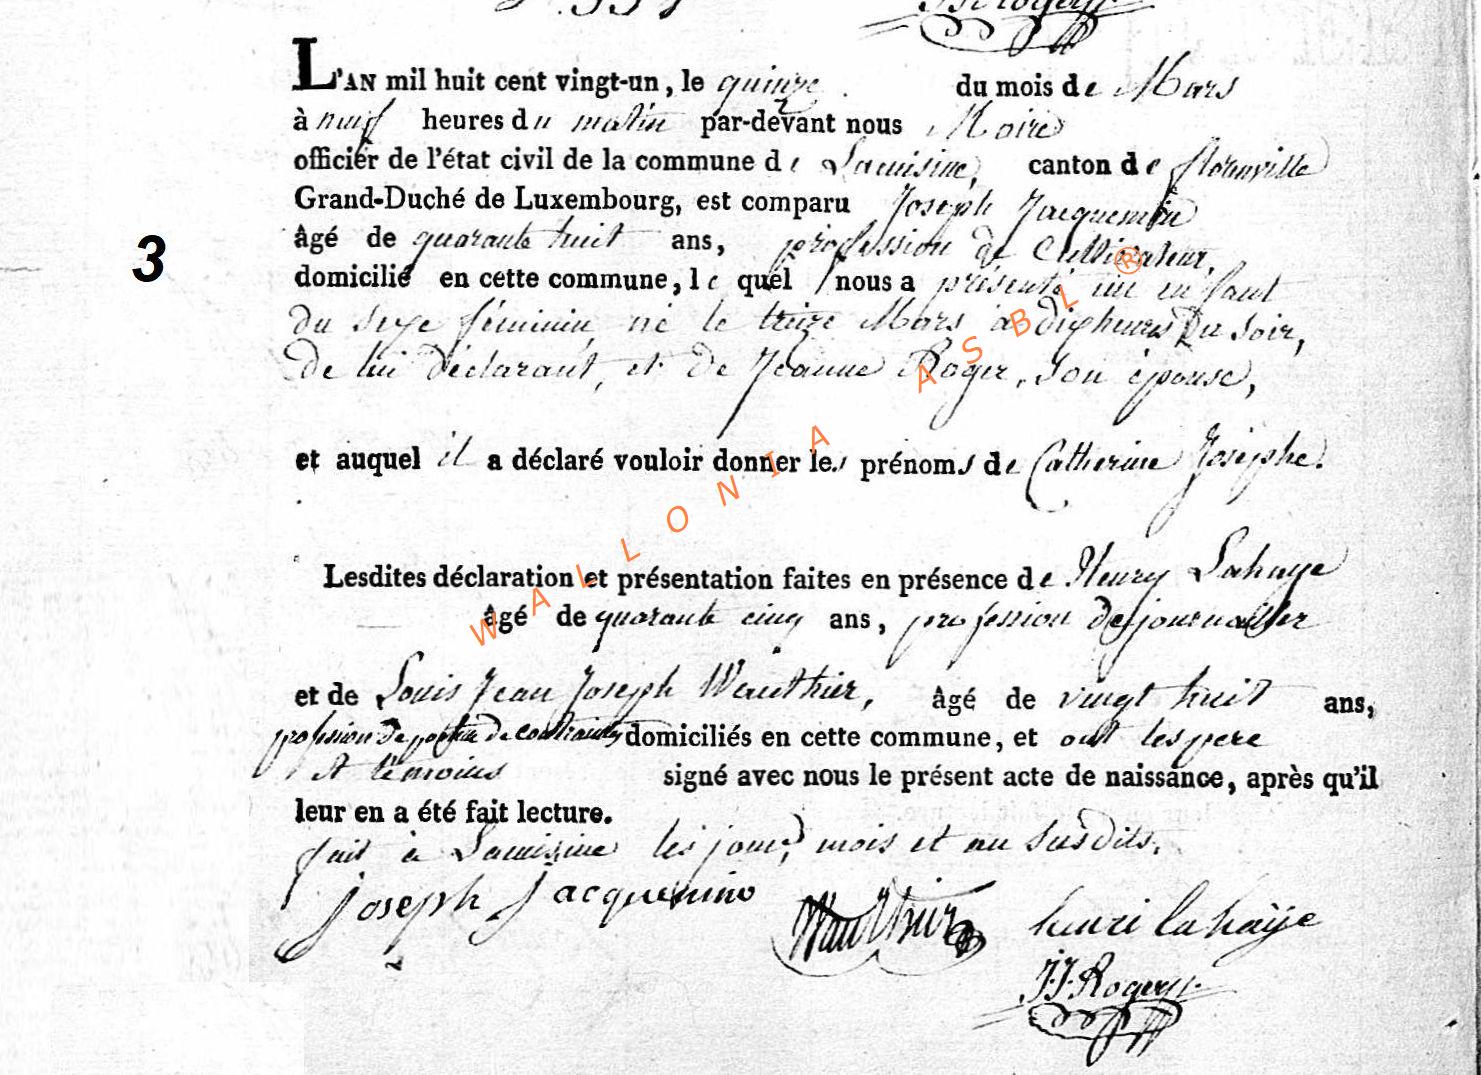 L'AN mil huit cent vingt-un, le quinze du mois de Mars
à neuf heures du matin par-devant nous Maire
officier de l'état civil de la commune de Lacuisine, canton de florenville
Grand-Duché de Luxembourg, est comparu Joseph Jacquemin
âgé de quarante huit ans, profession de Cultivateur,
3
domicilié en cette commune, le quel nous a présenté un enfant
du sexe féminin, né le treize Mars à dix heures du soir,
de lui déclarant, et de Jeanne Roger, son épouse,
et auquel il a déclaré vouloir donner les prénoms de Catherine Josèphe.
Lesdites déclaration et présentation faites en présence de Henry Lahaye
âgé de quarante cinq ans, profession de journalier
et de Louis Jean Joseph Wauthier, âgé de vingt huit ans,
profession de porteur de contraintes domiciliés en cette commune, et ont les pere
et témoins signé avec nous le présent acte de naissance, après qu'il
leur en a été fait lecture.
fait à Lacuisine les jour, mois et an susdits.
joseph jacquemin
Wauthier
henri lahaÿe
J. J. Rogery
WALLONIA ASBL ®